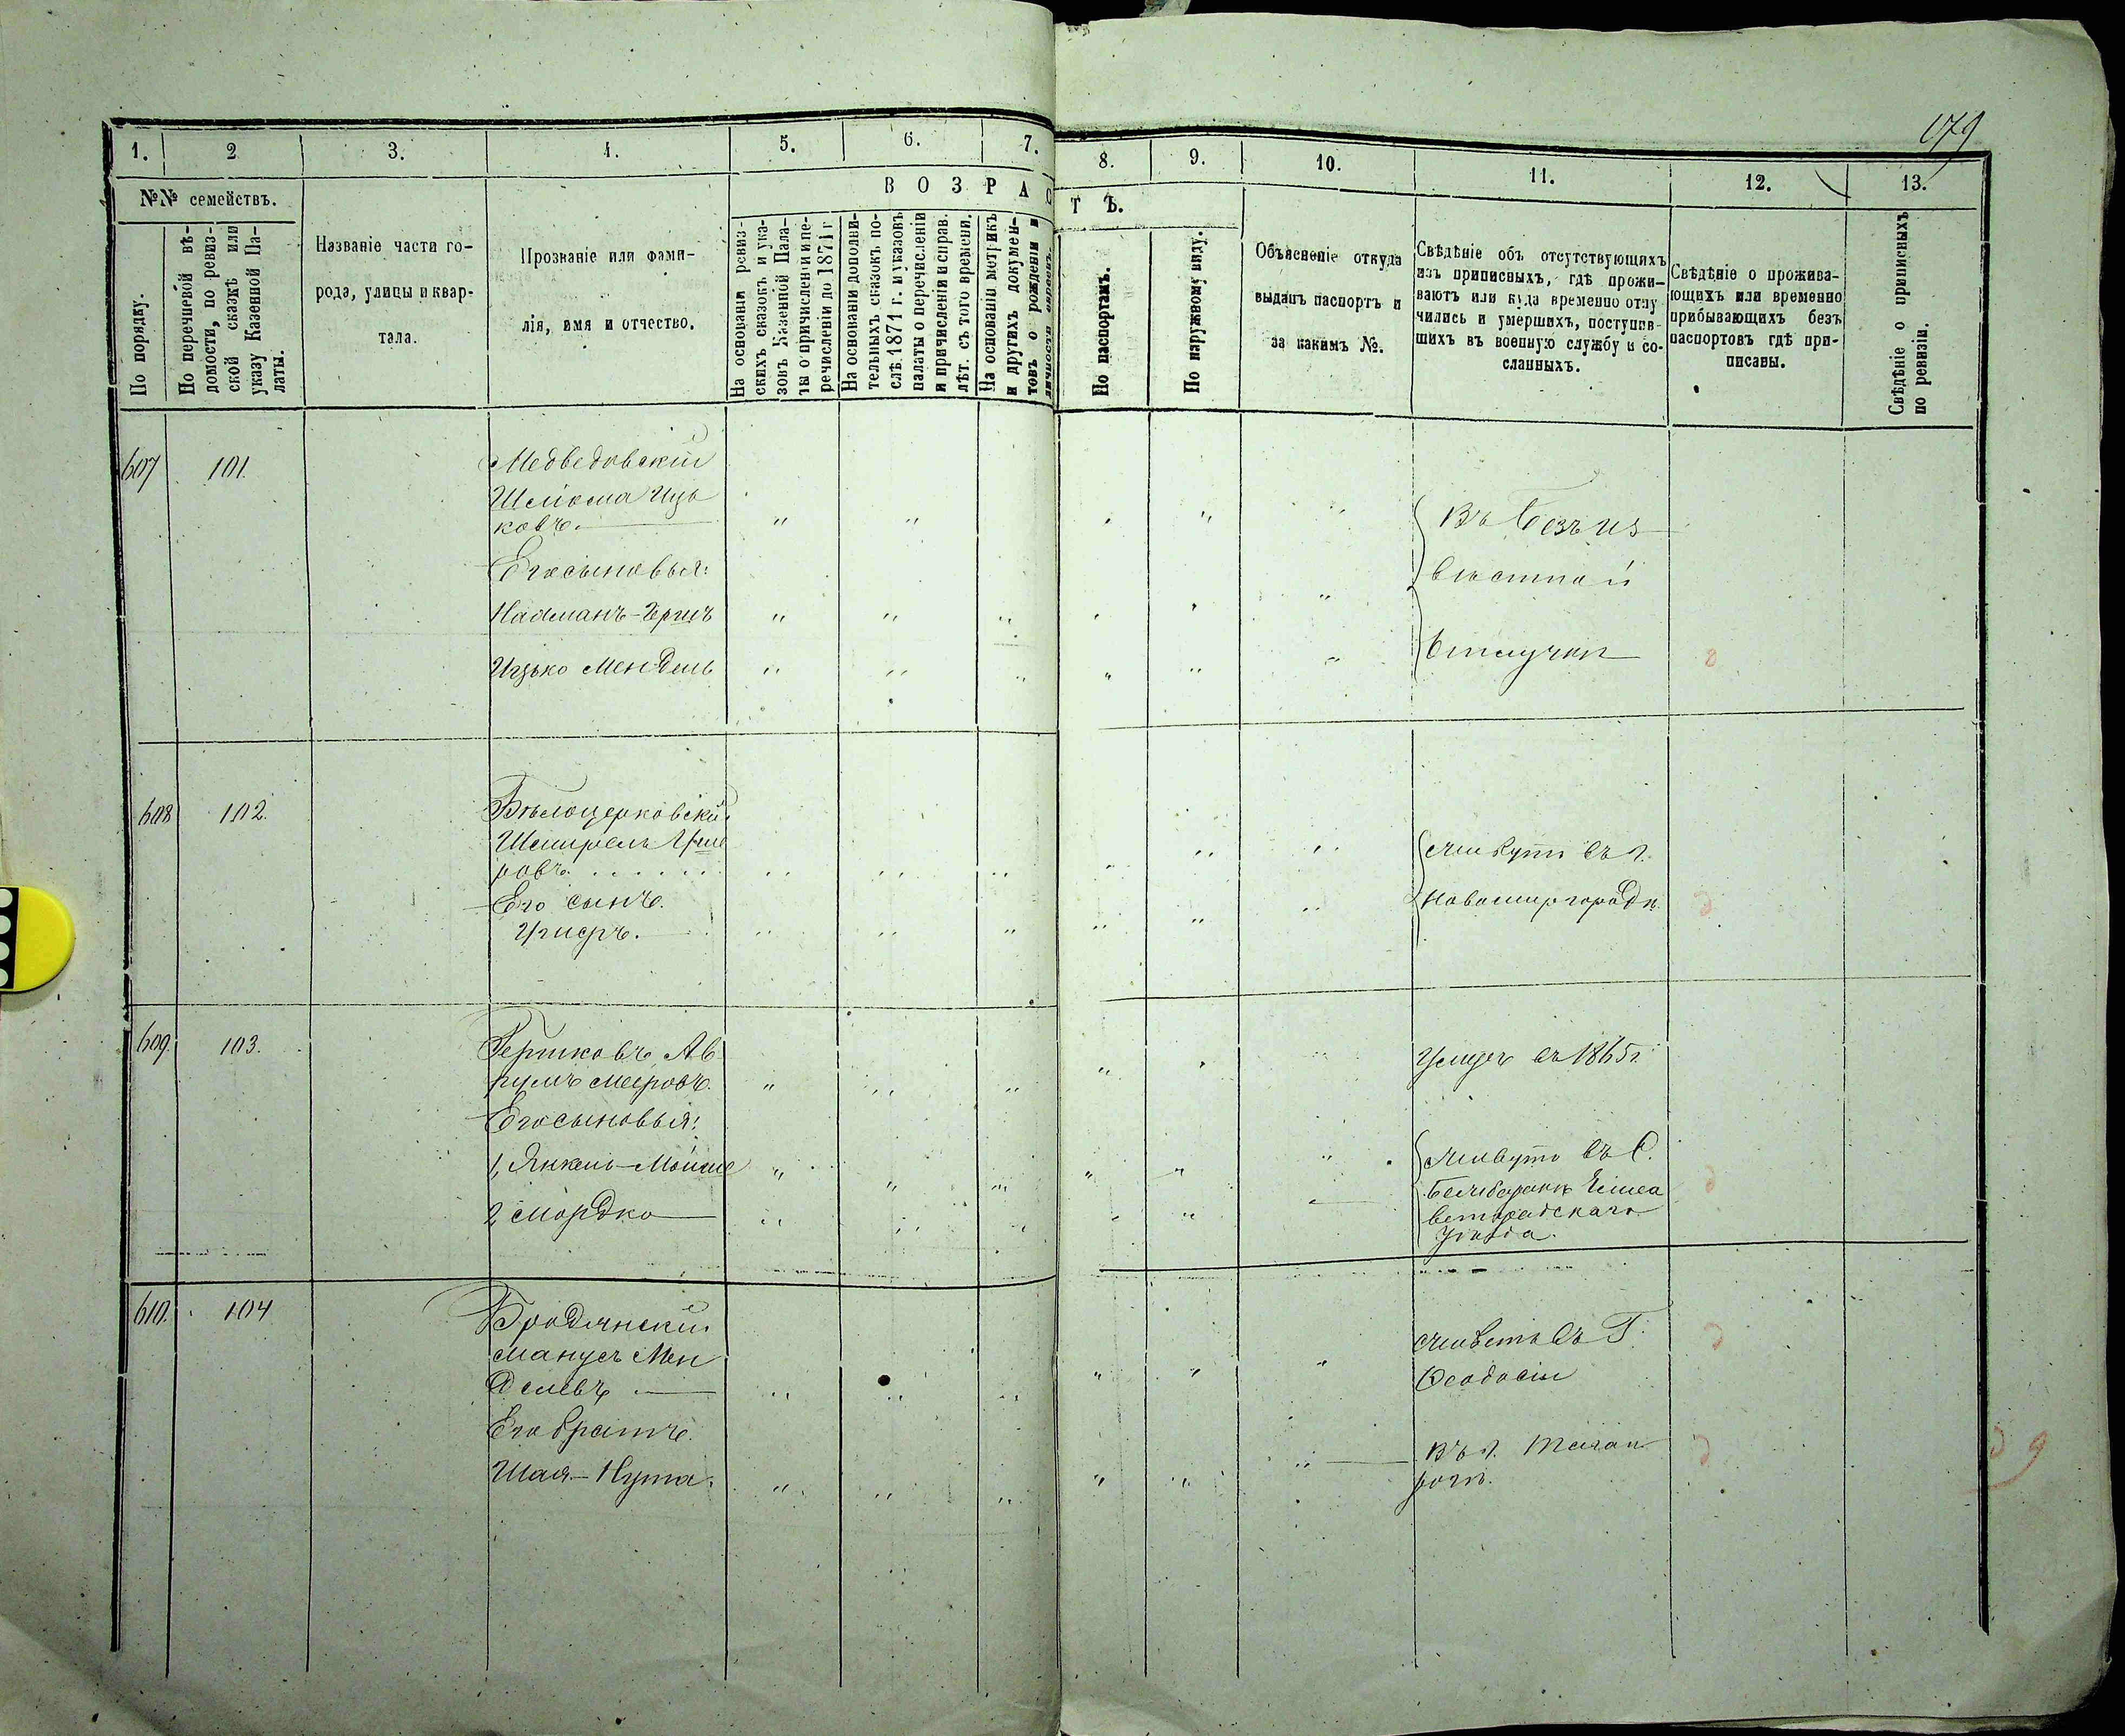 179
1. 2 3. 4. 5. 6. 7. 8. 9. 10. 11. 12. 13.
№№ семействъ.
По порядку.
По перечневой вѣ-
домости, по ревиз-
ской сказкѣ или
указу Казенной Па-
латы.
Названіе части го-
рода, улицы и квар-
тала.
Прозваніе или фами-
лія, имя и отчество.
ВОЗРАСТЪ.
На основаніи ревиз-
скихъ сказокъ и ука-
зовъ Казенной Пала-
ты о причисленіи и пе-
речисленіи до 1871 г.
На основаніи дополни-
тельныхъ сказокъ по-
слѣ 1871 г. и указовъ
палаты о перечисленіи
и причисленіи и справ.
лѣт. съ того времени.
На основаніи метрикъ
и другихъ докумен-
товъ о рожденіи и
По паспортамъ.
По наружному виду.
Объясненіе откуда
выданъ паспортъ и
за какимъ №.
Свѣдѣніе объ отсутствующихъ
изъ приписныхъ, гдѣ прожи-
ваютъ или куда временно отлу
чились и умершихъ, поступив-
шихъ въ военную службу и со-
сланныхъ.
Свѣдѣніе о прожива-
ющихъ или временно
прибывающихъ безъ
паспортовъ гдѣ при-
писаны.
Свѣдѣніе о приписныхъ
по ревизіи.
607 101.
Медведовскій
Шлиома Иць
ковъ.
Его сыновья:
Нахманъ-Гершъ
Ицько Мендель
Въ Безъиз
вѣстной
Отлучки
608 102.
Бѣлоцерковскій
Шмирель
ровъ.
Его сынъ.
живутъ въ г.
Новомиргородѣ
609. 103.
Гершковъ Ав
румъ Мееровъ.
Его сыновья:
1, Янкель-Мойше
2, Мордко
Умеръ въ 1865 г.
живутъ въ С.
Елиса
ветградскаго
уѣзда.
610. 104
Бродянскій
Манусъ Мен
делевъ
Его братъ.
Шая-Нута.
живетъ въ Г.
Ѳеодосіи
Въ г. Таган
рогѣ.